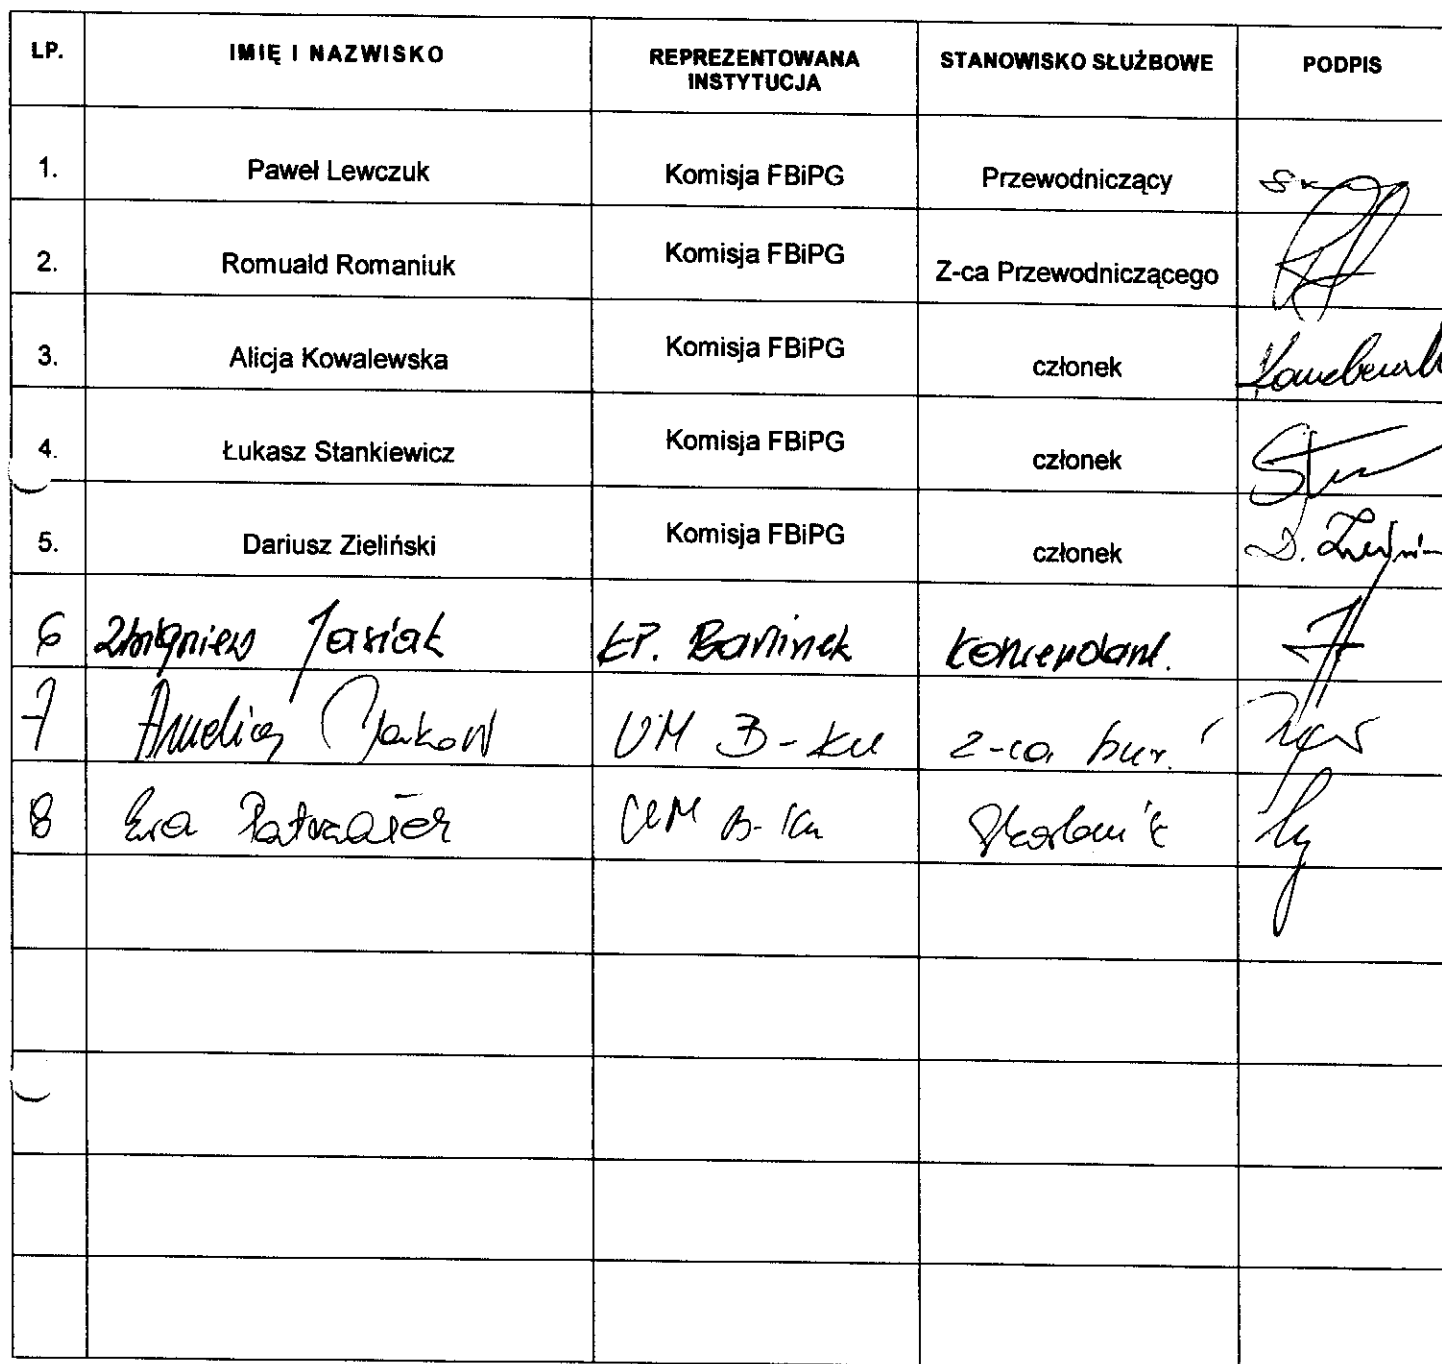 LP. IMIĘ I NAZWISKO REPREZENTOWANA INSTYTUCJA STANOWISKO SŁUŻBOWE PODPIS
1. Paweł Lewczuk Komisja FBiPG Przewodniczący
2. Romuald Romaniuk Komisja FBiPG Z-ca Przewodniczącego
3. Alicja Kowalewska Komisja FBiPG członek
4. Łukasz Stankiewicz Komisja FBiPG członek
5. Dariusz Zieliński Komisja FBiPG członek D.
6 Zbigniew Jasiak KP. Barlinek Komendant.
7 UM B-ku Z-ca bur.
8 Ewa UM B-ku Skarbnik